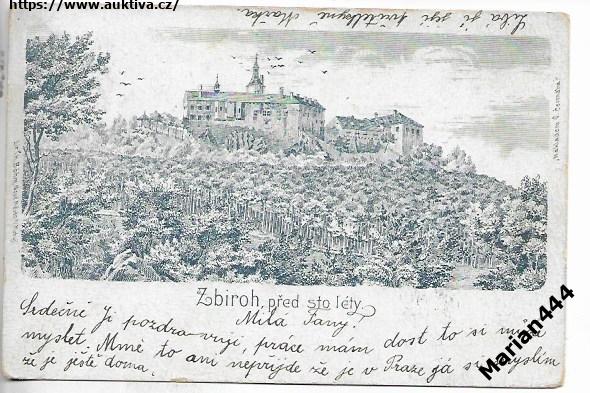 https://www.auktiva.cz/
Líbá jí její přítelkyně Mařka.
Zbiroh, před sto léty.
Milá Fany!
Srdečně Jí pozdravuji, práce mám dost to si může
myslet. Mně to ani nepřijde že je v Praze já si myslím
že je ještě doma.
Marian444